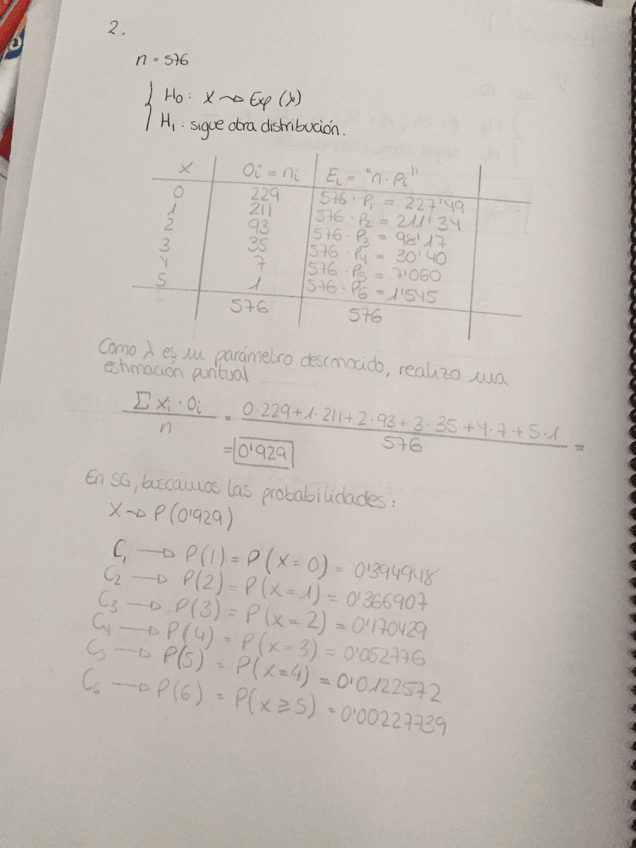 2.
n = 576
H0: X → Exp (λ)
H1: sigue otra distribución.
X Oi = ni Ei = "n·Pi"
0 229 576 · P1 = 227'49
1 211 576 · P2 = 211'34
2 93 576 · P3 = 98'17
3 35 576 · P4 = 30'40
4 7 576 · P5 = 7'060
5 1 576 · P6 = 1'545
576 576
Como λ es un parámetro desconocido, realizo una
estimación puntual
Σ Xi · Oi / n = 0·229+1·211+2·93+3·35+4·7+5·1 / 576 =
= 0'929
En SG, buscamos las probabilidades:
X → P(0'929)
C1 → P(1) = P(x=0) = 0'394948
C2 → P(2) = P(x=1) = 0'366907
C3 → P(3) = P(x=2) = 0'170429
C4 → P(4) = P(x=3) = 0'052776
C5 → P(5) = P(x=4) = 0'0122572
C6 → P(6) = P(x≥5) = 0'00227739